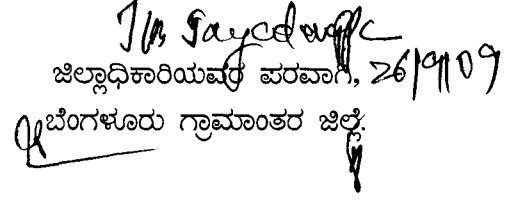 ಜಿಲ್ಲಾಧಿಕಾರಿಯವರ ಪರವಾಗಿ, 26/9/09
ಬೆಂಗಳೂರು ಗ್ರಾಮಾಂತರ ಜಿಲ್ಲೆ.